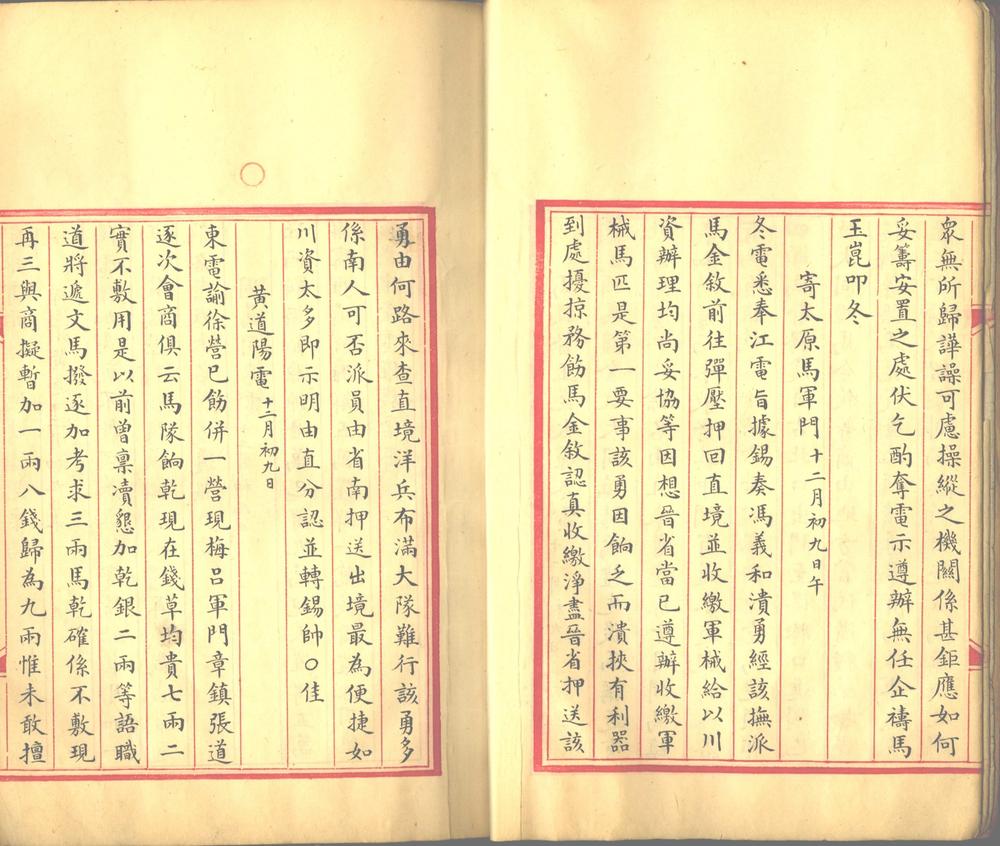 眾無所歸譁譟可慮操縱之機關係甚鉅應如何
妥籌安置之處伏乞酌奪電示遵辦無任企禱馬
玉崑叩冬
寄太原馬軍門十二月初九日午
冬電悉奉江電旨據錫奏馮義和潰勇經該撫派
馬金敘前往彈壓押回直境並收繳軍械給以川
資辦理均尚妥協等因想晉省當已遵辦收繳軍
械馬匹是第一要事該勇因餉乏而潰挾有利器
到處擾掠務飭馬金敘認真收繳淨盡晉省押送該
勇由何路來查直境洋兵布滿大隊難行該勇多
係南人可否派員由省南押送出境最為便捷如
川資太多即示明由直分認並轉錫帥○佳
黃道陽電十二月初九日
東電諭徐營已飭併一營現梅呂軍門章鎮張道
逐次會商俱云馬隊餉乾現在錢草均貴七兩二
實不敷用是以前曾稟瀆懇加乾銀二兩等語職
道將遞文馬撥逐加考求三兩馬乾確係不敷現
再三與商擬暫加一兩八錢歸為九兩惟未敢擅